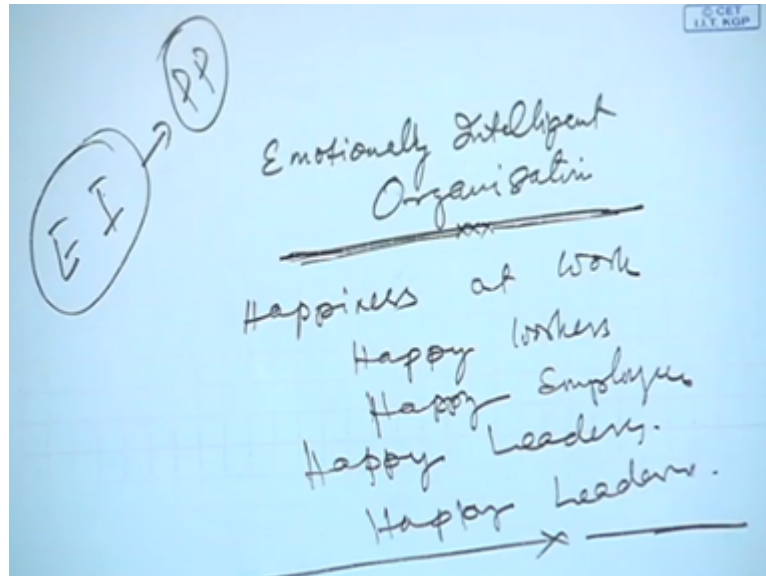 © CET
I.I.T. KGP
PP
EI
Emotionally Intelligent
Organisation
xxx
Happiness at Work
Happy Workers
Happy Employees
Happy Leaders.
Happy Leaders.